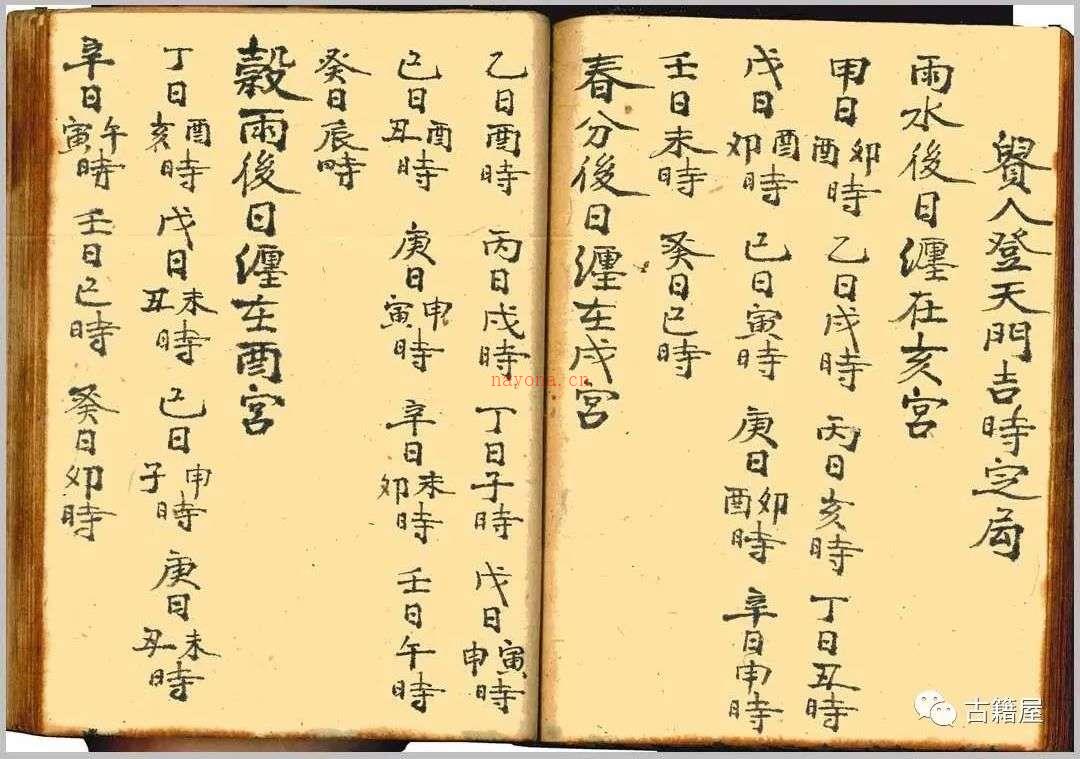 貴人登天門吉時定局
雨水後日纏在亥宮
甲日卯酉時 乙日戌時 丙日亥時 丁日丑時
戊日酉卯時 己日寅時 庚日卯酉時 辛日申時
壬日未時 癸日巳時
春分後日纏在戌宮
乙日酉時 丙日戌時 丁日子時 戊日寅申時
己日酉丑時 庚日申寅時 辛日未卯時 壬日午時
癸日辰時
穀雨後日纏在酉宮
丁日酉亥時 戊日未丑時 己日申子時 庚日未丑時
辛日午寅時 壬日巳時 癸日卯時
nayona.cn
古籍屋